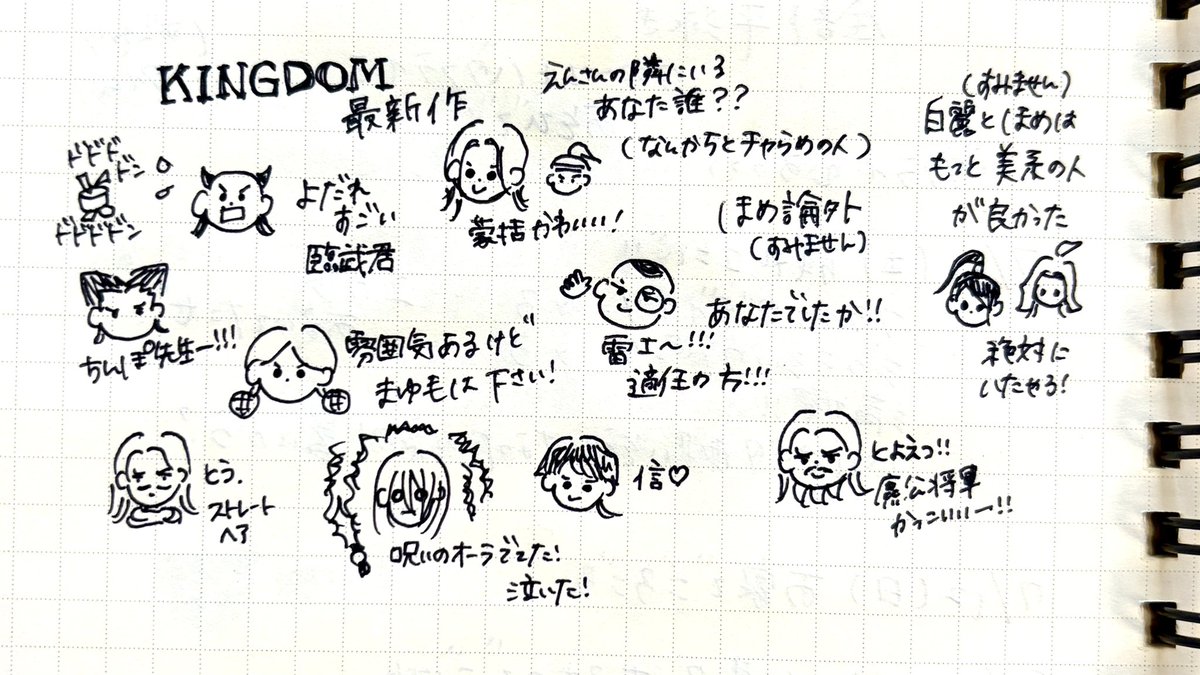 KINGDOM
最新作
えんさんの隣にいる
あなた誰??
(なんかちとチャらめの人)
(すみません)
白麗としほめは
もっと美系の人
が良かった
ドドド
ドン
ドドドドン
よだれ
すごい
臨武君
蒙恬かわいい!
しほめ論外
(すみません)
ちんぽ先生ー!!!
雰囲気あるけど
まゆ毛は下さい!
雷土〜!!!
適任の方!!!
あなたでしたか!!
絶対に
いたやろ!
とう.
ストレート
ヘア
呪いのオーラでてた!
泣いた!
信♡
とよえつ!!
麃公将軍
かっこいいー!!